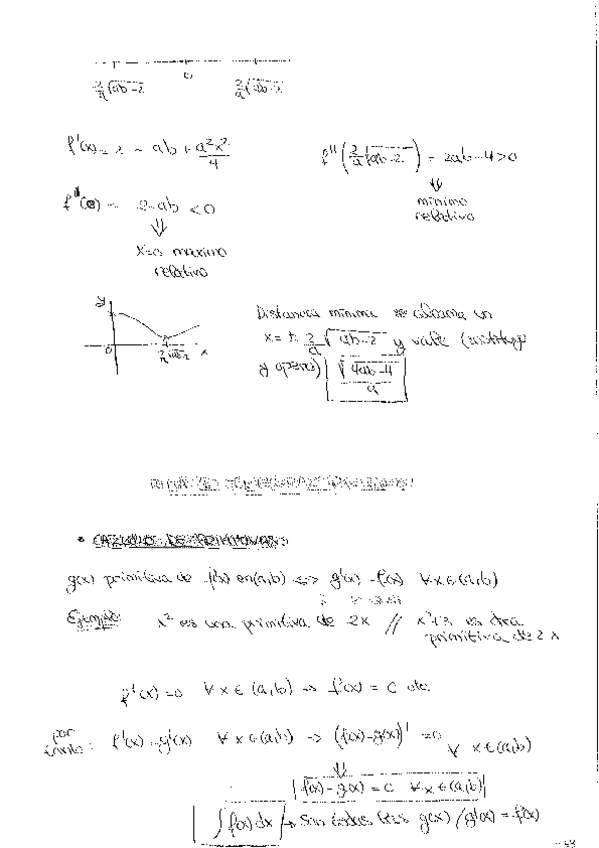 0
2/a √ab-2    2/a √ab-2
f'(x) = 2 - ab + a²x²/4    f''(2/a √ab-2) = 2ab-4>0
⇓
mínimo
relativo
f''(0) = 2-ab < 0
⇓
x=0 maximo
relativo
y
0    2/a √ab-2    x
Distancia mínima se alcanza en
x = ± 2/a √ab-2 y vale (
y operas) √4ab-4/a
• CÁLCULO DE PRIMITIVAS:
g(x) primitiva de f(x) en (a,b) <=> g'(x) = f(x) ∀x∈(a,b)
Ejemplo: x² es una primitiva de 2x // x²+3 es otra
primitiva de 2x
f'(x)=0 ∀x∈(a,b) → f(x) = C cte.
por
tanto: f'(x)=g'(x) ∀x∈(a,b) → (f(x)-g(x))' = 0
∀x∈(a,b)
⇓
f(x)-g(x) = C ∀x∈(a,b)
∫f(x)dx → Son todas las g(x) / g'(x) = f(x)